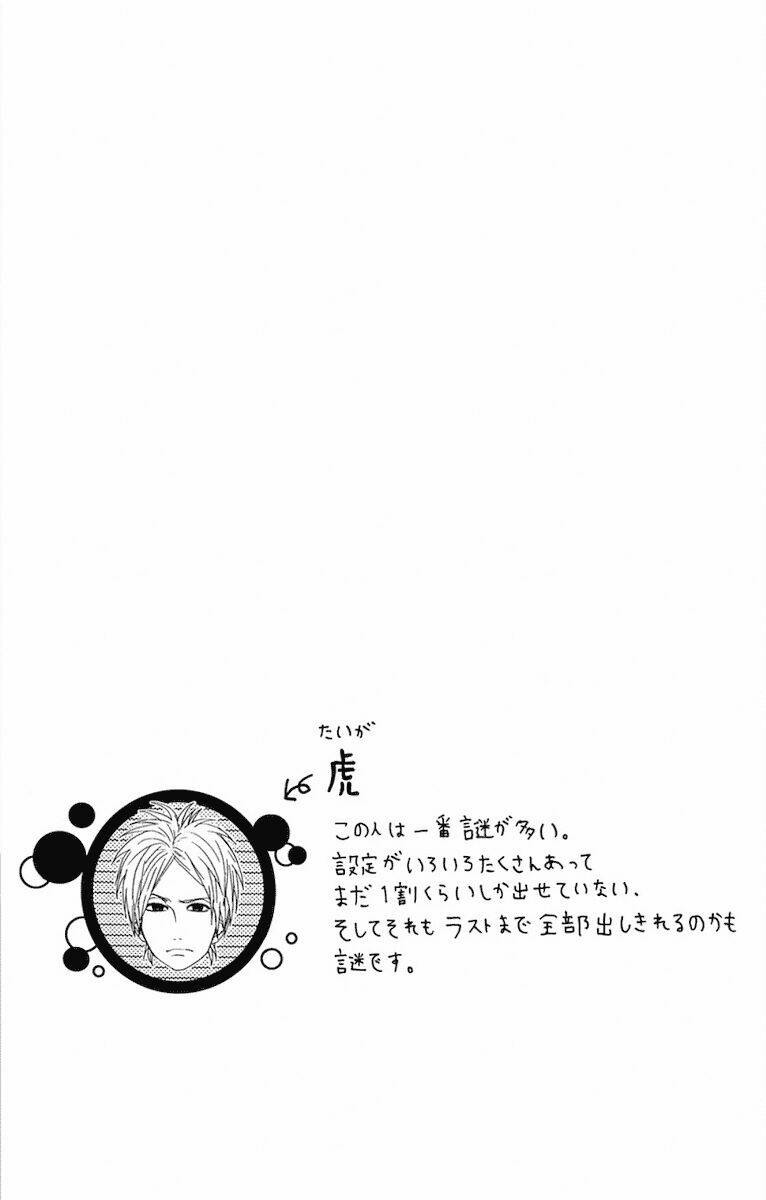 たいが
虎
この人は一番謎が多い。
設定がいろいろたくさんあって
まだ1割くらいしか出せていない、
そしてそれもラストまで全部出しきれるのかも
謎です。